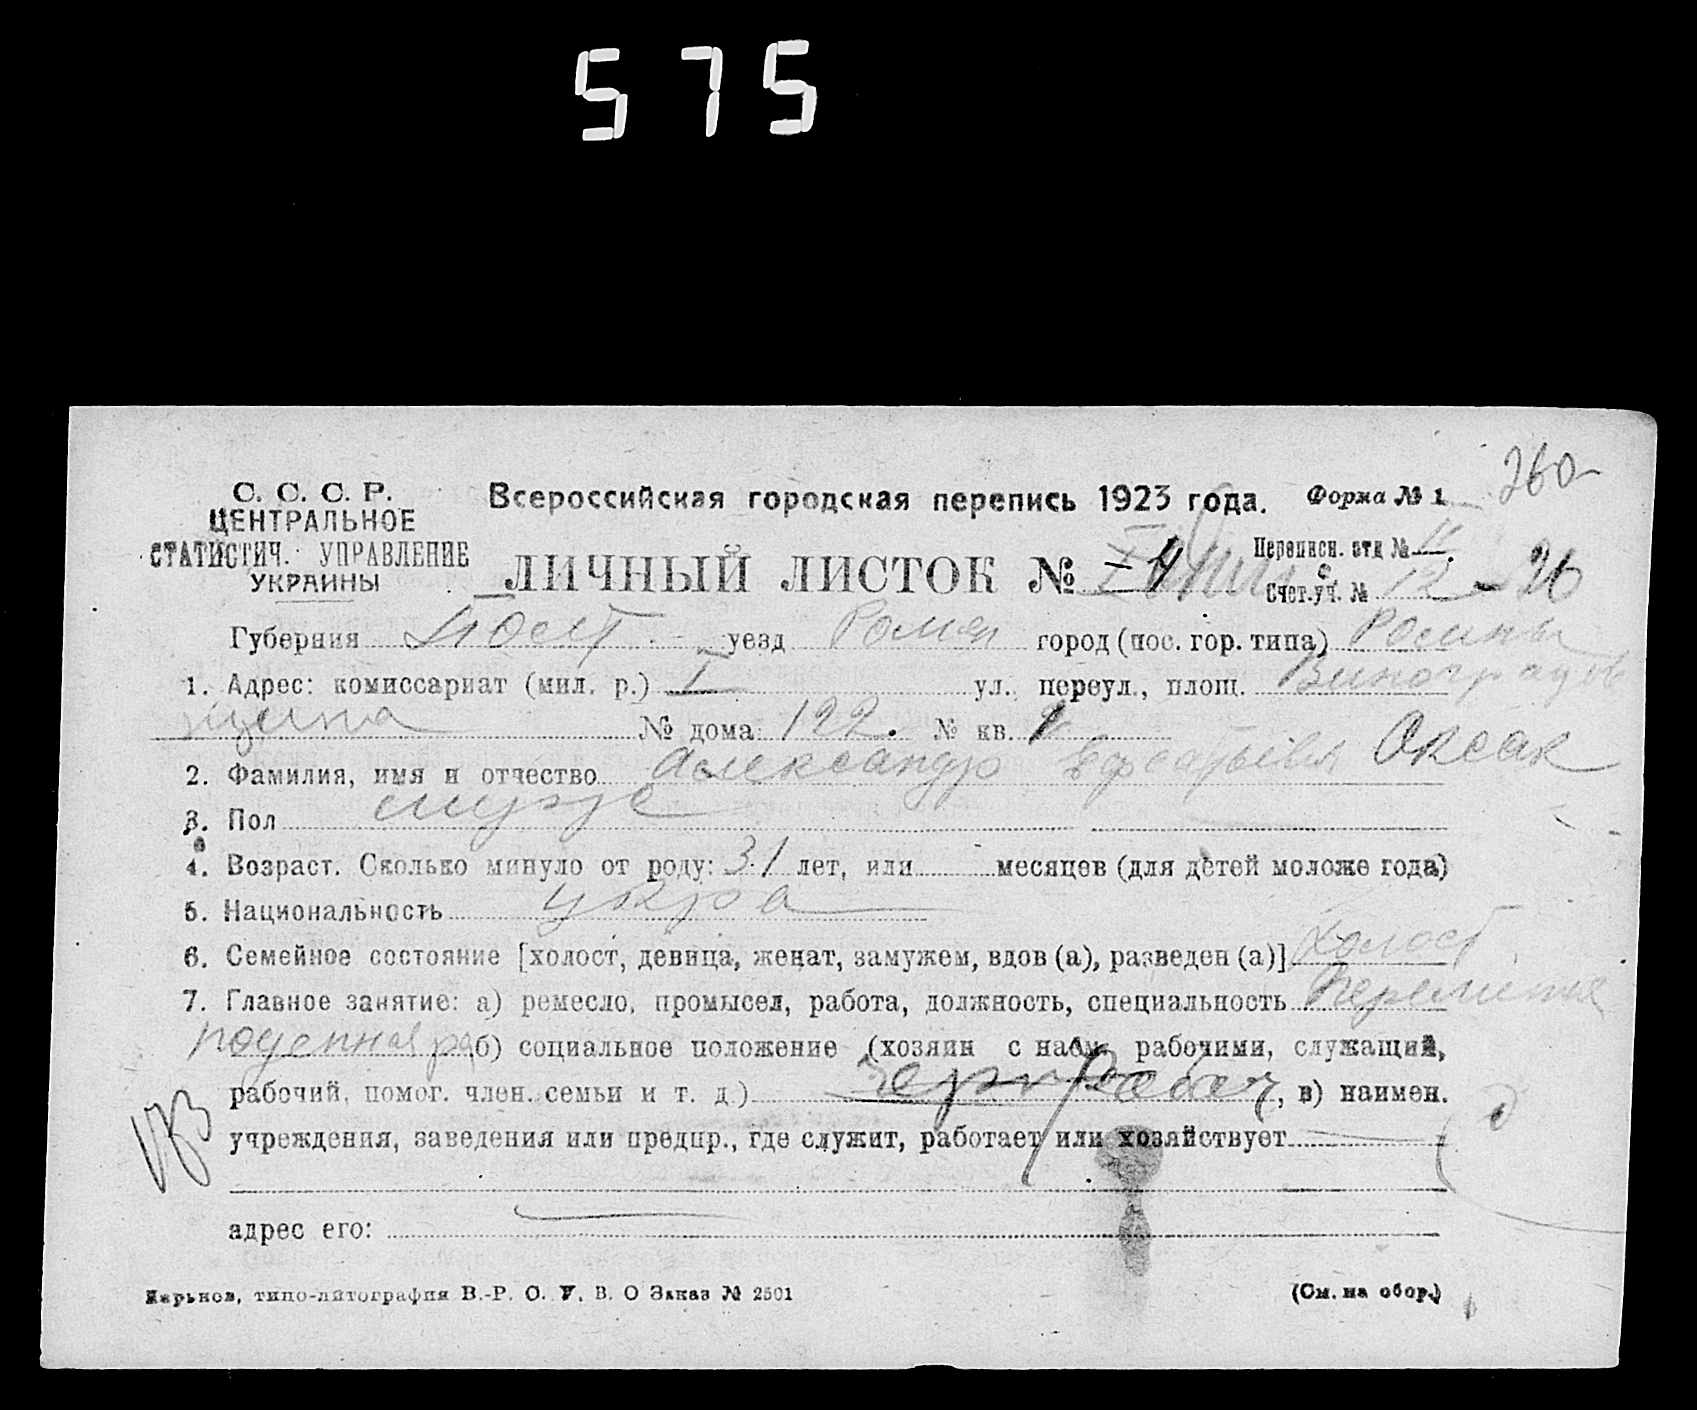 575
260
С. С. С. Р.
ЦЕНТРАЛЬНОЕ
СТАТИСТИЧ. УПРАВЛЕНИЕ
УКРАИНЫ
Всероссийская городская перепись 1923 года. Форма № 1
ЛИЧНЫЙ ЛИСТОК № 4
Переписн. отд № II
Счет.уч. № 12 - 26
Губерния уезд Ромен город (пос. гор. типа) Ромны
1. Адрес: комиссариат (мил. р.) I ул., переул., площ. Виноградов
щина № дома 122. № кв.
2. Фамилия, имя и отчество Александр Оксак
3. Пол мужс
4. Возраст. Сколько минуло от роду: 31 лет, или месяцев (для детей моложе года)
5. Национальность укра
6. Семейное состояние [холост, девица, женат, замужем, вдов (а), разведен (а)] Холост
7. Главное занятие: а) ремесло, промысел, работа, должность, специальность
поденная раб) социальное положение (хозяин с наем. рабочими, служащий,
рабочий, помог. член. семьи и т. д.) Рабоч, в) наимен.
учреждения, заведения или предпр., где служит, работает или хозяйствует
адрес его:
Харьков, типо-литография В.-Р. О. У. В. О Заказ № 2501 (См. на обор.)